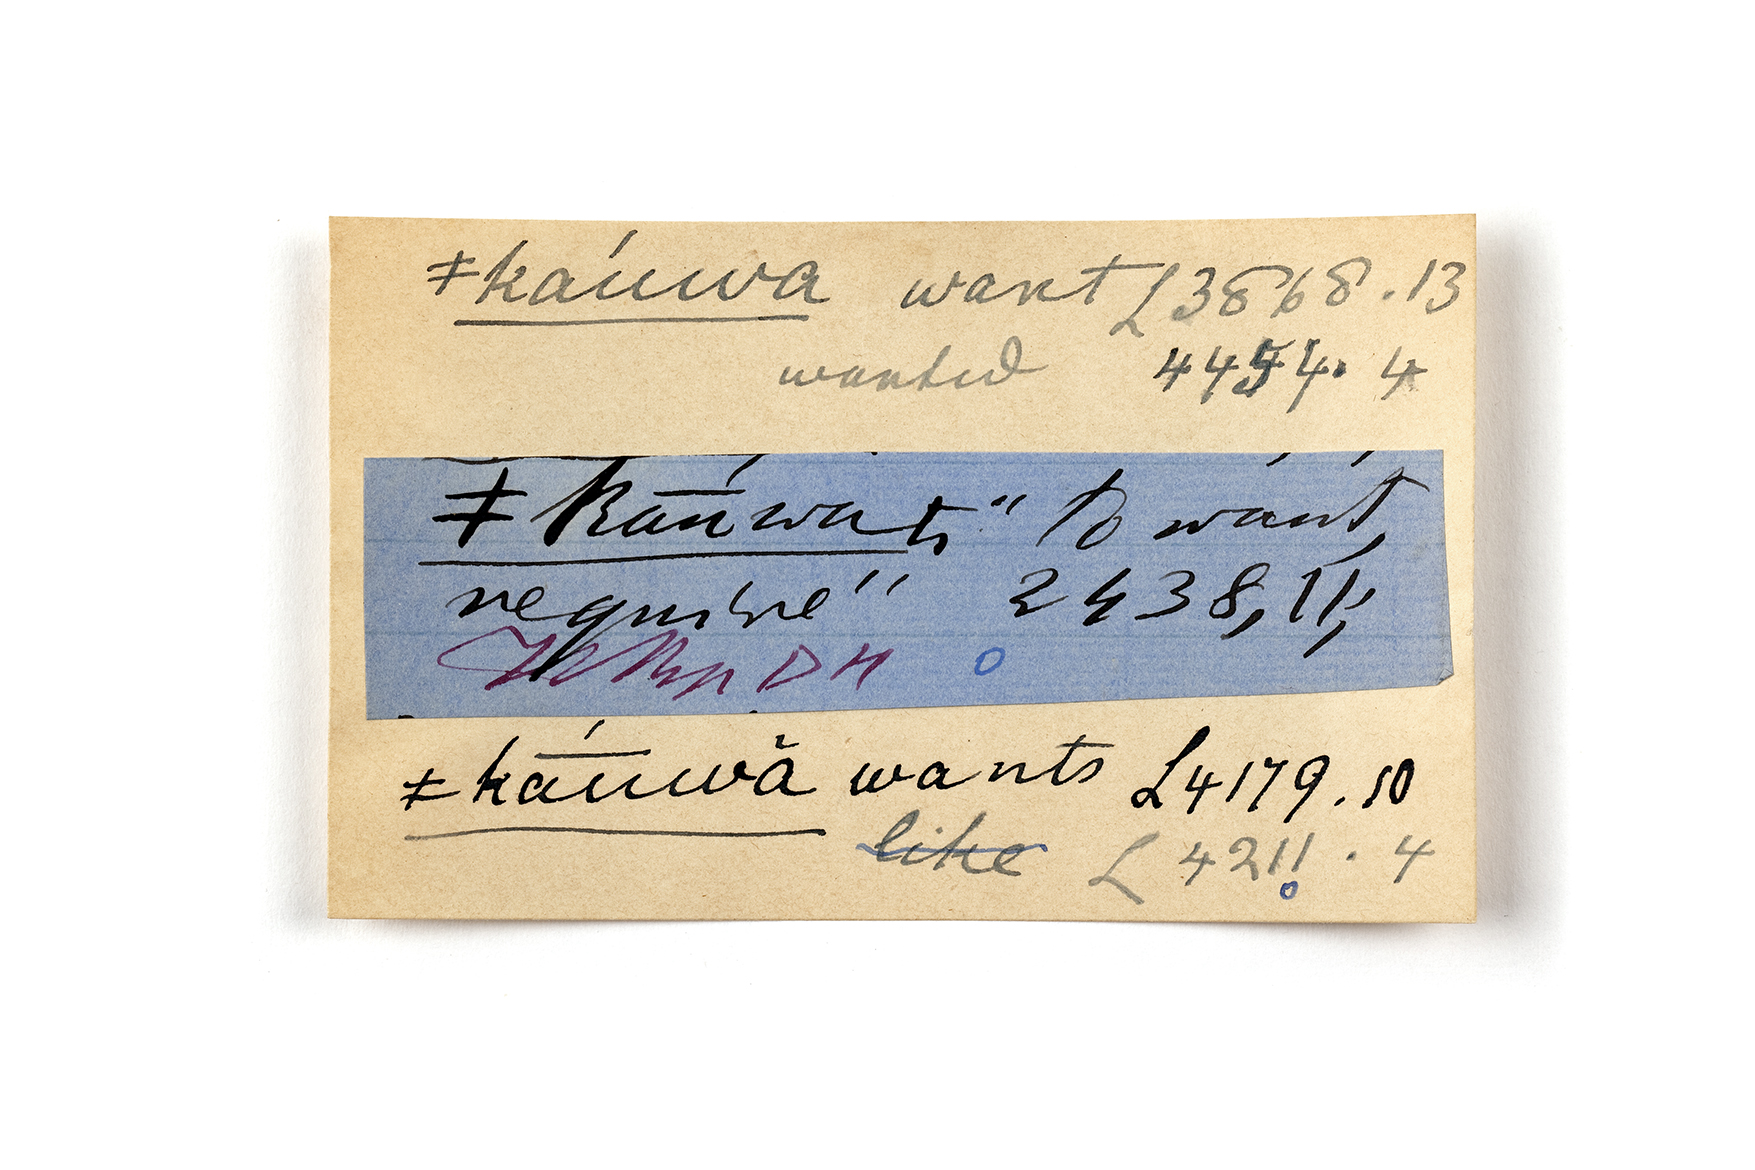 ǂkáuwa want L3868.13
wanted 4454.4
ǂkau̅wa, " to want,
require" 2438, 11,
DH
ǂkā́uwă wants L4179.10
like L4211.4